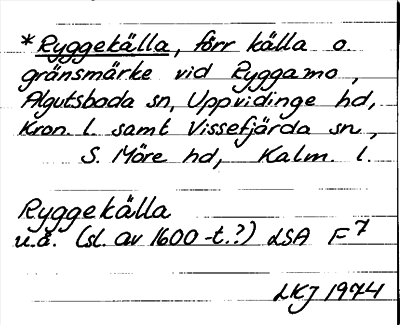 *Ryggekälla, förr källa o
gränsmärke vid Ryggamo,
Algutsboda sn, Uppvidinge hd,
Kron. l. samt Vissefjärda sn,
S. Möre hd, Kalm. l.
Ryggekälla
u.å. (sl. av 1600-t.?) LSA F 7
LKJ 1974